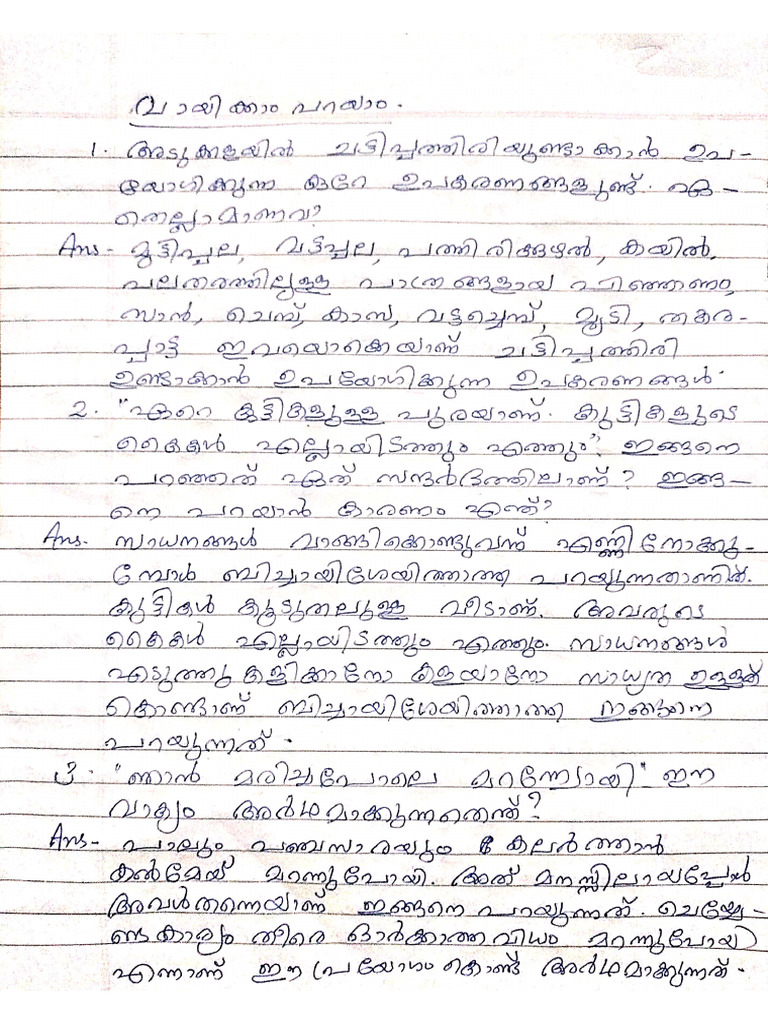 വായിക്കാം പറയാം.
1. അടുക്കളയിൽ ചട്ടിപ്പത്തിരിയുണ്ടാക്കാൻ ഉപ-
യോഗിക്കുന്ന കുറേ ഉപകരണങ്ങളുണ്ട്. ഏ-
തെല്ലാമാണവ?
Ans- മുട്ടിപ്പല, വട്ടപ്പല, പത്തിരിക്കുഴൽ, കയിൽ,
പലതരത്തിലുള്ള പാത്രങ്ങളായ പിഞ്ഞാണം,
സാൻ, ചെമ്പ്, കാസ, വട്ടച്ചെമ്പ്, മൂടി, തകര-
പ്പാട്ട ഇവയൊക്കെയാണ് ചട്ടിപ്പത്തിരി
ഉണ്ടാക്കാൻ ഉപയോഗിക്കുന്ന ഉപകരണങ്ങൾ.
2. "ഏറെ കുട്ടികളുള്ള പുരയാണ്. കുട്ടികളുടെ
കൈകൾ എല്ലായിടത്തും എത്തും". ഇങ്ങനെ
പറഞ്ഞത് ഏത് സന്ദർഭത്തിലാണ്? ഇങ്ങ-
നെ പറയാൻ കാരണം എന്ത്?
Ans- സാധനങ്ങൾ വാങ്ങിക്കൊണ്ടുവന്ന് എണ്ണിനോക്കു-
മ്പോൾ ബിച്ചായിശേയിത്താത്ത പറയുന്നതാണിത്.
കുട്ടികൾ കൂടുതലുള്ള വീടാണ്. അവരുടെ
കൈകൾ എല്ലായിടത്തും എത്തും. സാധനങ്ങൾ
എടുത്തു കളിക്കാനോ കളയാനോ സാധ്യത ഉള്ളത്
കൊണ്ടാണ് ബിച്ചായിശേയിത്താത്ത ഇങ്ങനെ
പറയുന്നത്.
3. "ഞാൻ മരിച്ചപോലെ മറന്ന്പോയി" ഈ
വാക്യം അർഥമാക്കുന്നതെന്ത്?
Ans- പാലും പഞ്ചസാരയും കലർത്താൻ
കൽമേയ് മറന്നുപോയി. അത് മനസ്സിലായപ്പോൾ
അവൾതന്നെയാണ് ഇങ്ങനെ പറയുന്നത്. ചെയ്യേ-
ണ്ടകാര്യം തീരെ ഓർക്കാത്തവിധം മറന്നുപോയി
എന്നാണ് ഈ പ്രയോഗം കൊണ്ട് അർഥമാക്കുന്നത്.